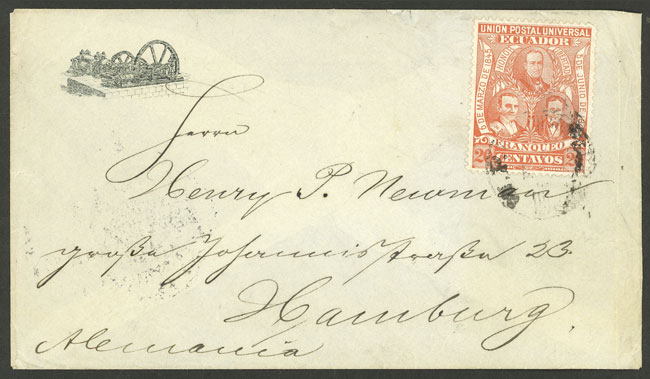 UNION POSTAL UNIVERSAL
ECUADOR
HONOR LIBERTAD
6 DE MARZO DE 1845
5 DE JUNIO DE
FRANQUEO
20 CENTAVOS 2
Herrn
Henry P. Newman
große Johannisstraße 23.
Hamburg.
Alemania